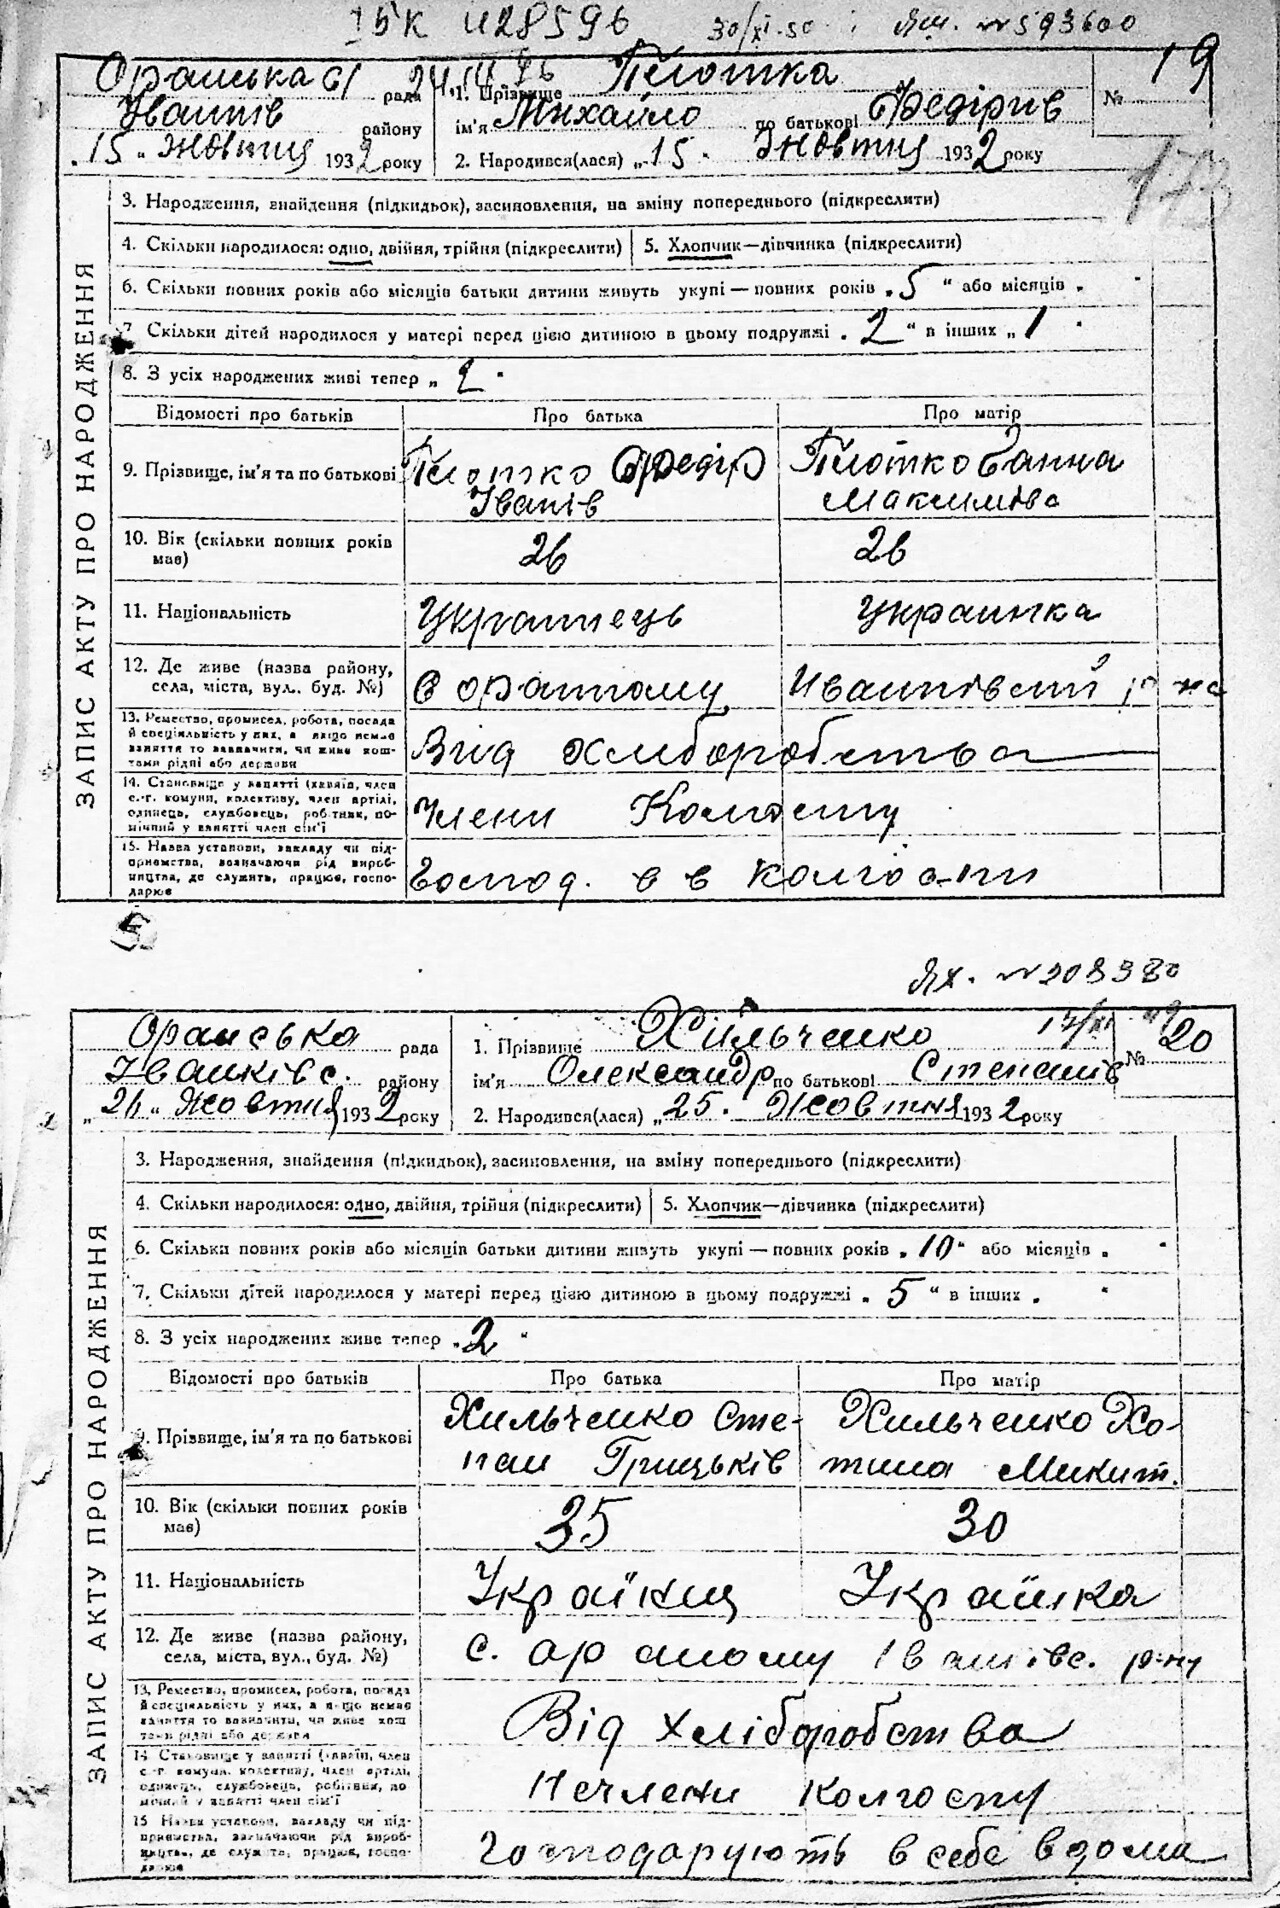 ІБК 428596 30/XI-50 Ям. № 593600
Оранська с/ рада 1. Прізвище Плотка № 19
Іванків району ім'я Михайло по батькові Федірів
„15„ Жовтня 1932 року 2. Народився(лася) „15„ Жовтня 1932 року
ЗАПИС АКТУ ПРО НАРОДЖЕННЯ
3. Народження, знайдення (підкидьок), засиновлення, на зміну попереднього (підкреслити)
4. Скільки народилося: одно, двійня, трійня (підкреслити) 5. Хлопчик—дівчинка (підкреслити)
6. Скільки повних років або місяців батьки дитини живуть укупі — повних років „5“ або місяців „
7. Скільки дітей народилося у матері перед цією дитиною в цьому подружжі „2“ в інших „1
8. З усіх народжених живі тепер „2
Відомості про батьків Про батька Про матір
9. Прізвище, ім'я та по батькові Плотко Федір Плотко Ганна
Іванів Максимівс
10. Вік (скільки повних років 26 26
має)
11. Національність Українець Українка
12. Де живе (назва району, В Оранному Иванківский р-на
села, міста, вул. буд. №)
13. Ремество, промисел, робота, посада
й спеціяльність у них, а якщо немає Від хліборобства
заняття то зазначити, чи живе кош-
тами рідні або держави
14. Становище у занятті (хазяїн, член
с.-г. комуни, колективу, член артілі, Члени Колгоспу
одинець, службовець, робітник, по-
мічний у занятті член сім'ї
15. Назва установи, закладу чи під-
приємства, зазначаючи рід вироб- Господ. в в колгоспи
ництва, де служить, працює, госпо-
дарює
Ях. № 208380
Оранська рада 1. Прізвище Хильченко № 20
Іванківс. району ім'я Олександр по батькові Степанів
„26„ Жовтня 1932 року 2. Народився(лася) „25. Жовтня 1932 року
ЗАПИС АКТУ ПРО НАРОДЖЕННЯ
3. Народження, знайдення (підкидьок), засиновлення, на зміну попереднього (підкреслити)
4. Скільки народилося: одно, двійня, трійня (підкреслити) 5. Хлопчик—дівчинка (підкреслити)
6. Скільки повних років або місяців батьки дитини живуть укупі — повних років „10“ або місяців „
7. Скільки дітей народилося у матері перед цією дитиною в цьому подружжі „5“ в інших „
8. З усіх народжених живе тепер „2“
Відомості про батьків Про батька Про матір
9. Прізвище, ім'я та по батькові Хильченко Сте- Хильченко Хо-
пан Грицьків тина Микит.
10. Вік (скільки повних років 35 30
має)
11. Національність Українц Українка
12. Де живе (назва району, с. Оранному Іванківс. р-ну
села, міста, вул., буд. №)
13. Ремество, промисел, робота, посада
й спеціяльність у них, а якщо немає Від хліборобства
заняття то зазначити, чи живе кош
тами рідні або держави
14 Становище у занятті (хазяїн, член
с.-г. комуни, колективу, член артілі, Нечлени колгоспу
одинець, службовець, робітник, по
мічний у занятті член сім'ї
15 Назва установи, закладу чи під-
приємства, зазначаючи рід вироб- Господарують в себе вдома
ництва, де служить, працює, госпо-
дарює